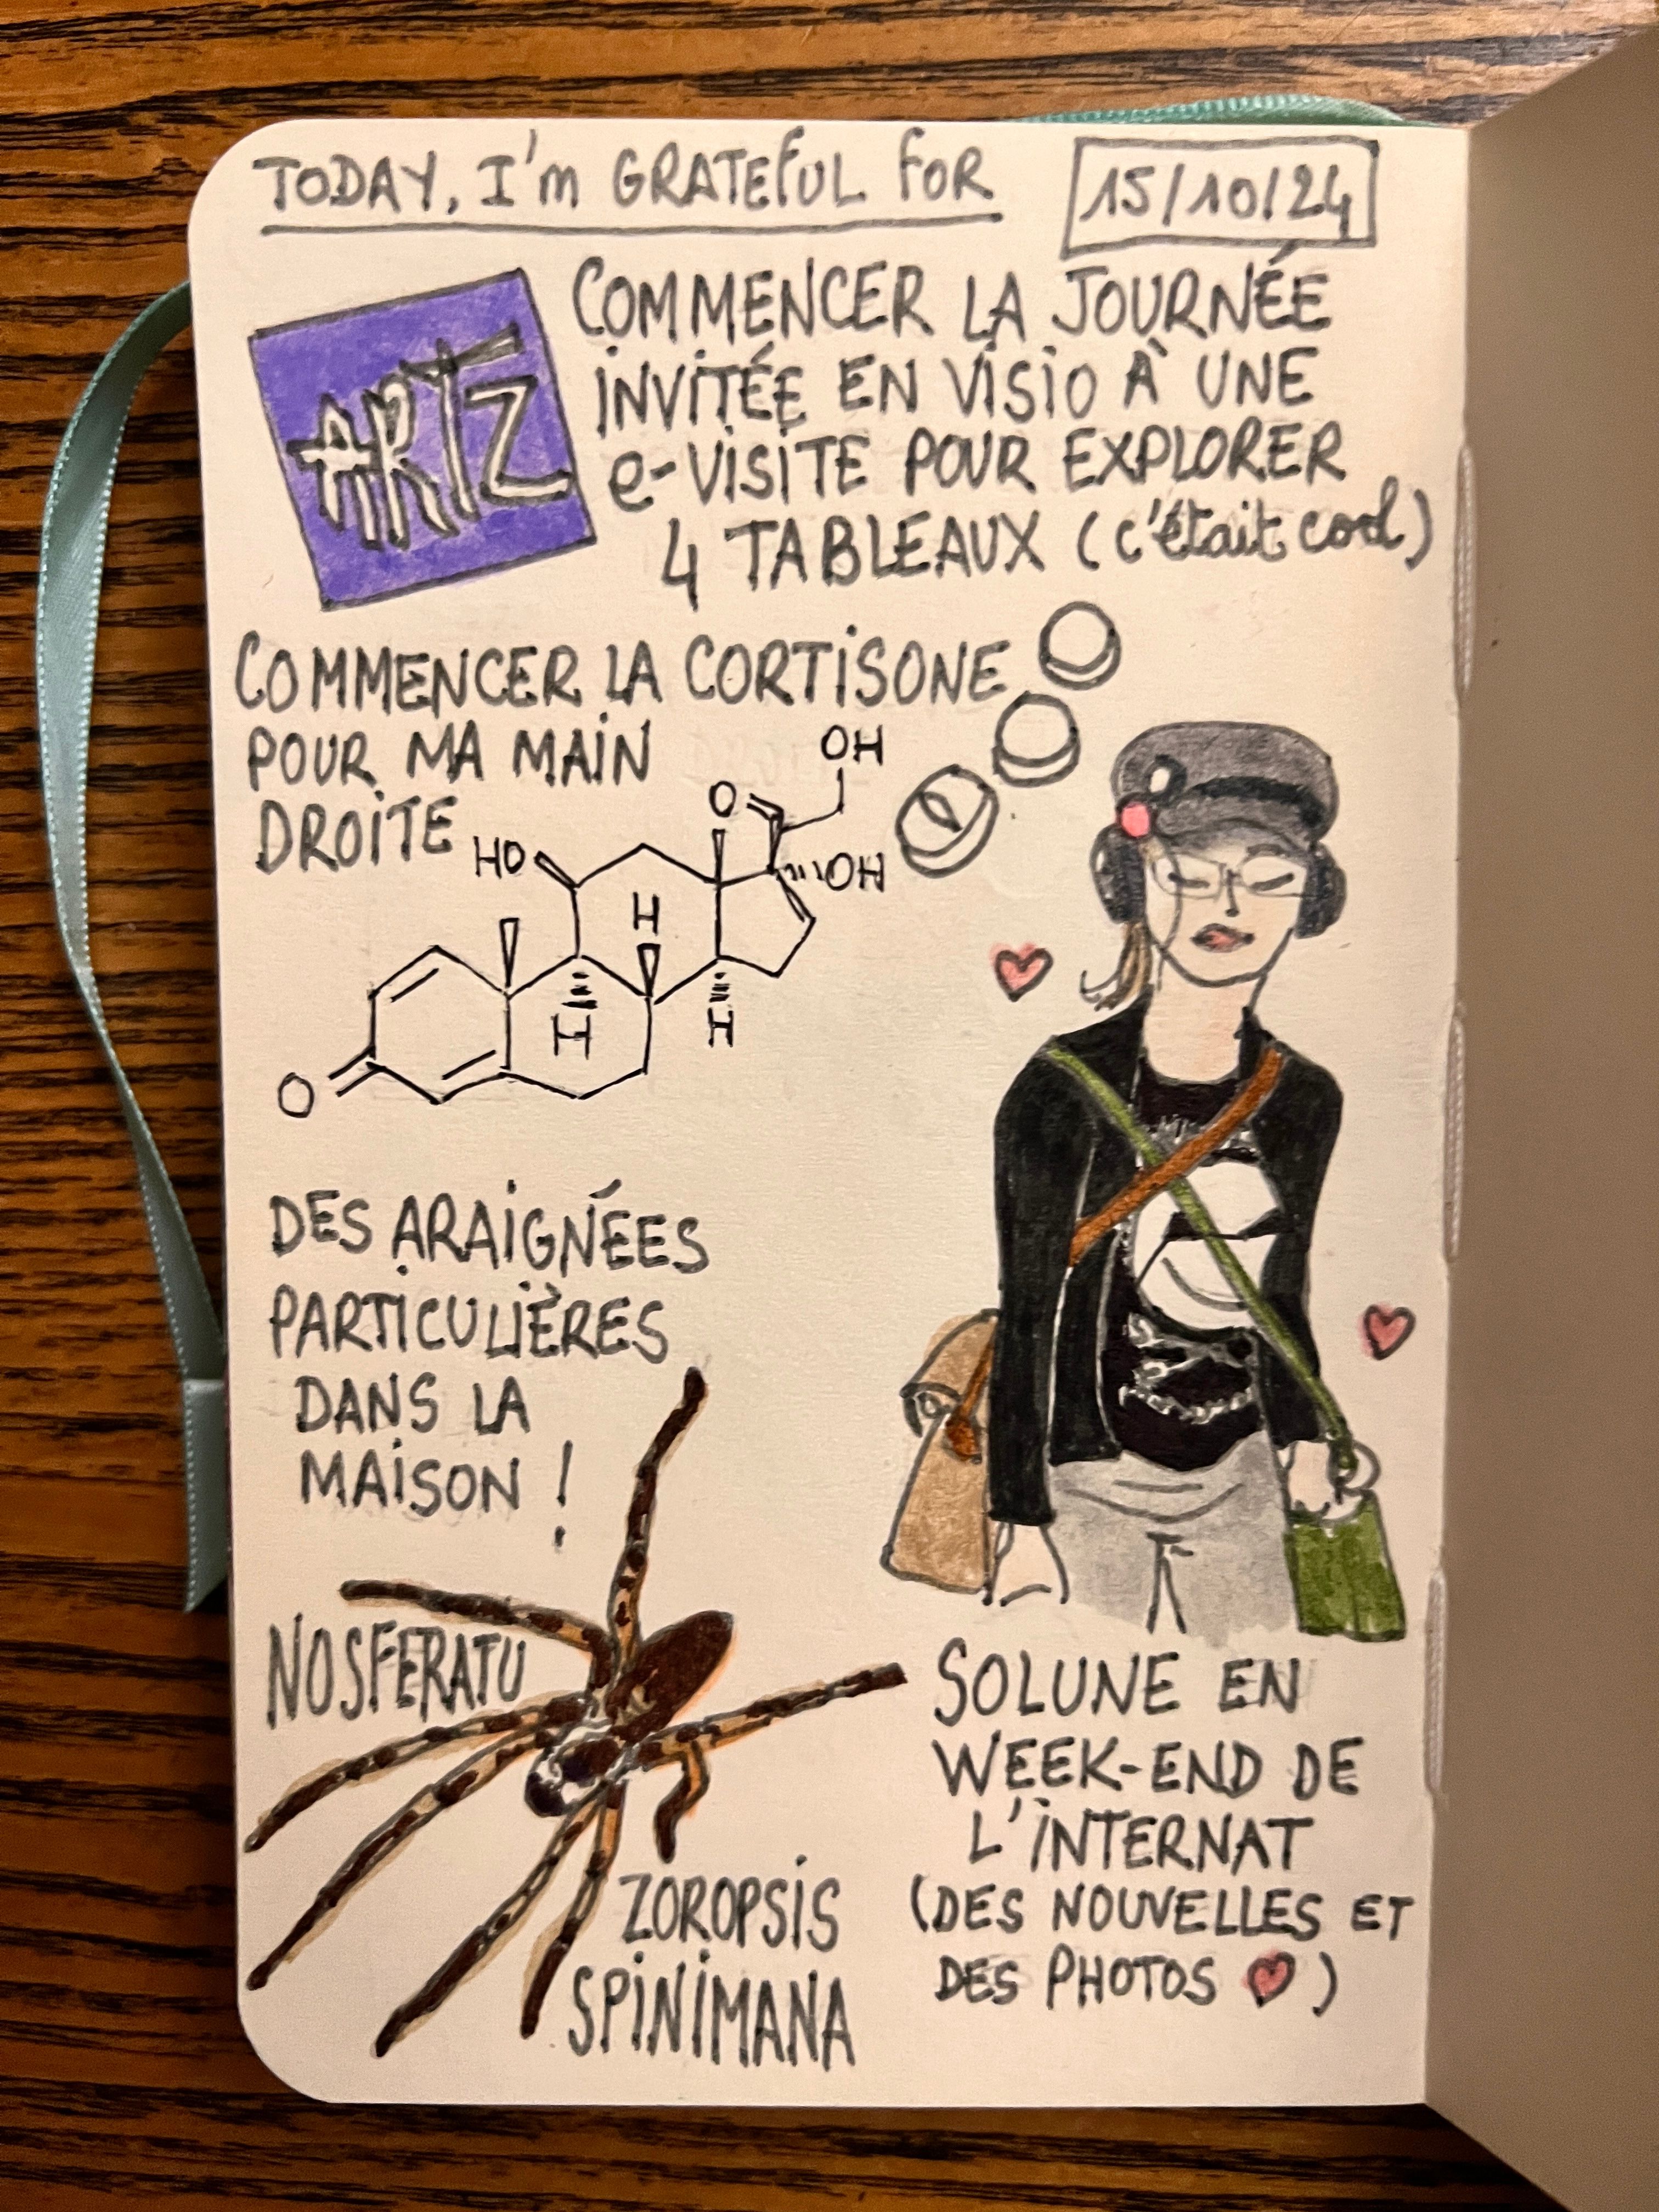 TODAY, I'm GRATEFUL FOR
15/10/24
ARTZ
COMMENCER LA JOURNÉE
INVITÉE EN VISIO À UNE
e-VISITE POUR EXPLORER
4 TABLEAUX (c'était cool)
COMMENCER LA CORTISONE
POUR MA MAIN
DROITE
OH
O
HO
OH
H
H
H
O
DES ARAIGNÉES
PARTICULIÈRES
DANS LA
MAISON !
NOSFERATU
ZOROPSIS
SPINIMANA
SOLUNE EN
WEEK-END DE
L'INTERNAT
(DES NOUVELLES ET
DES PHOTOS ♥)